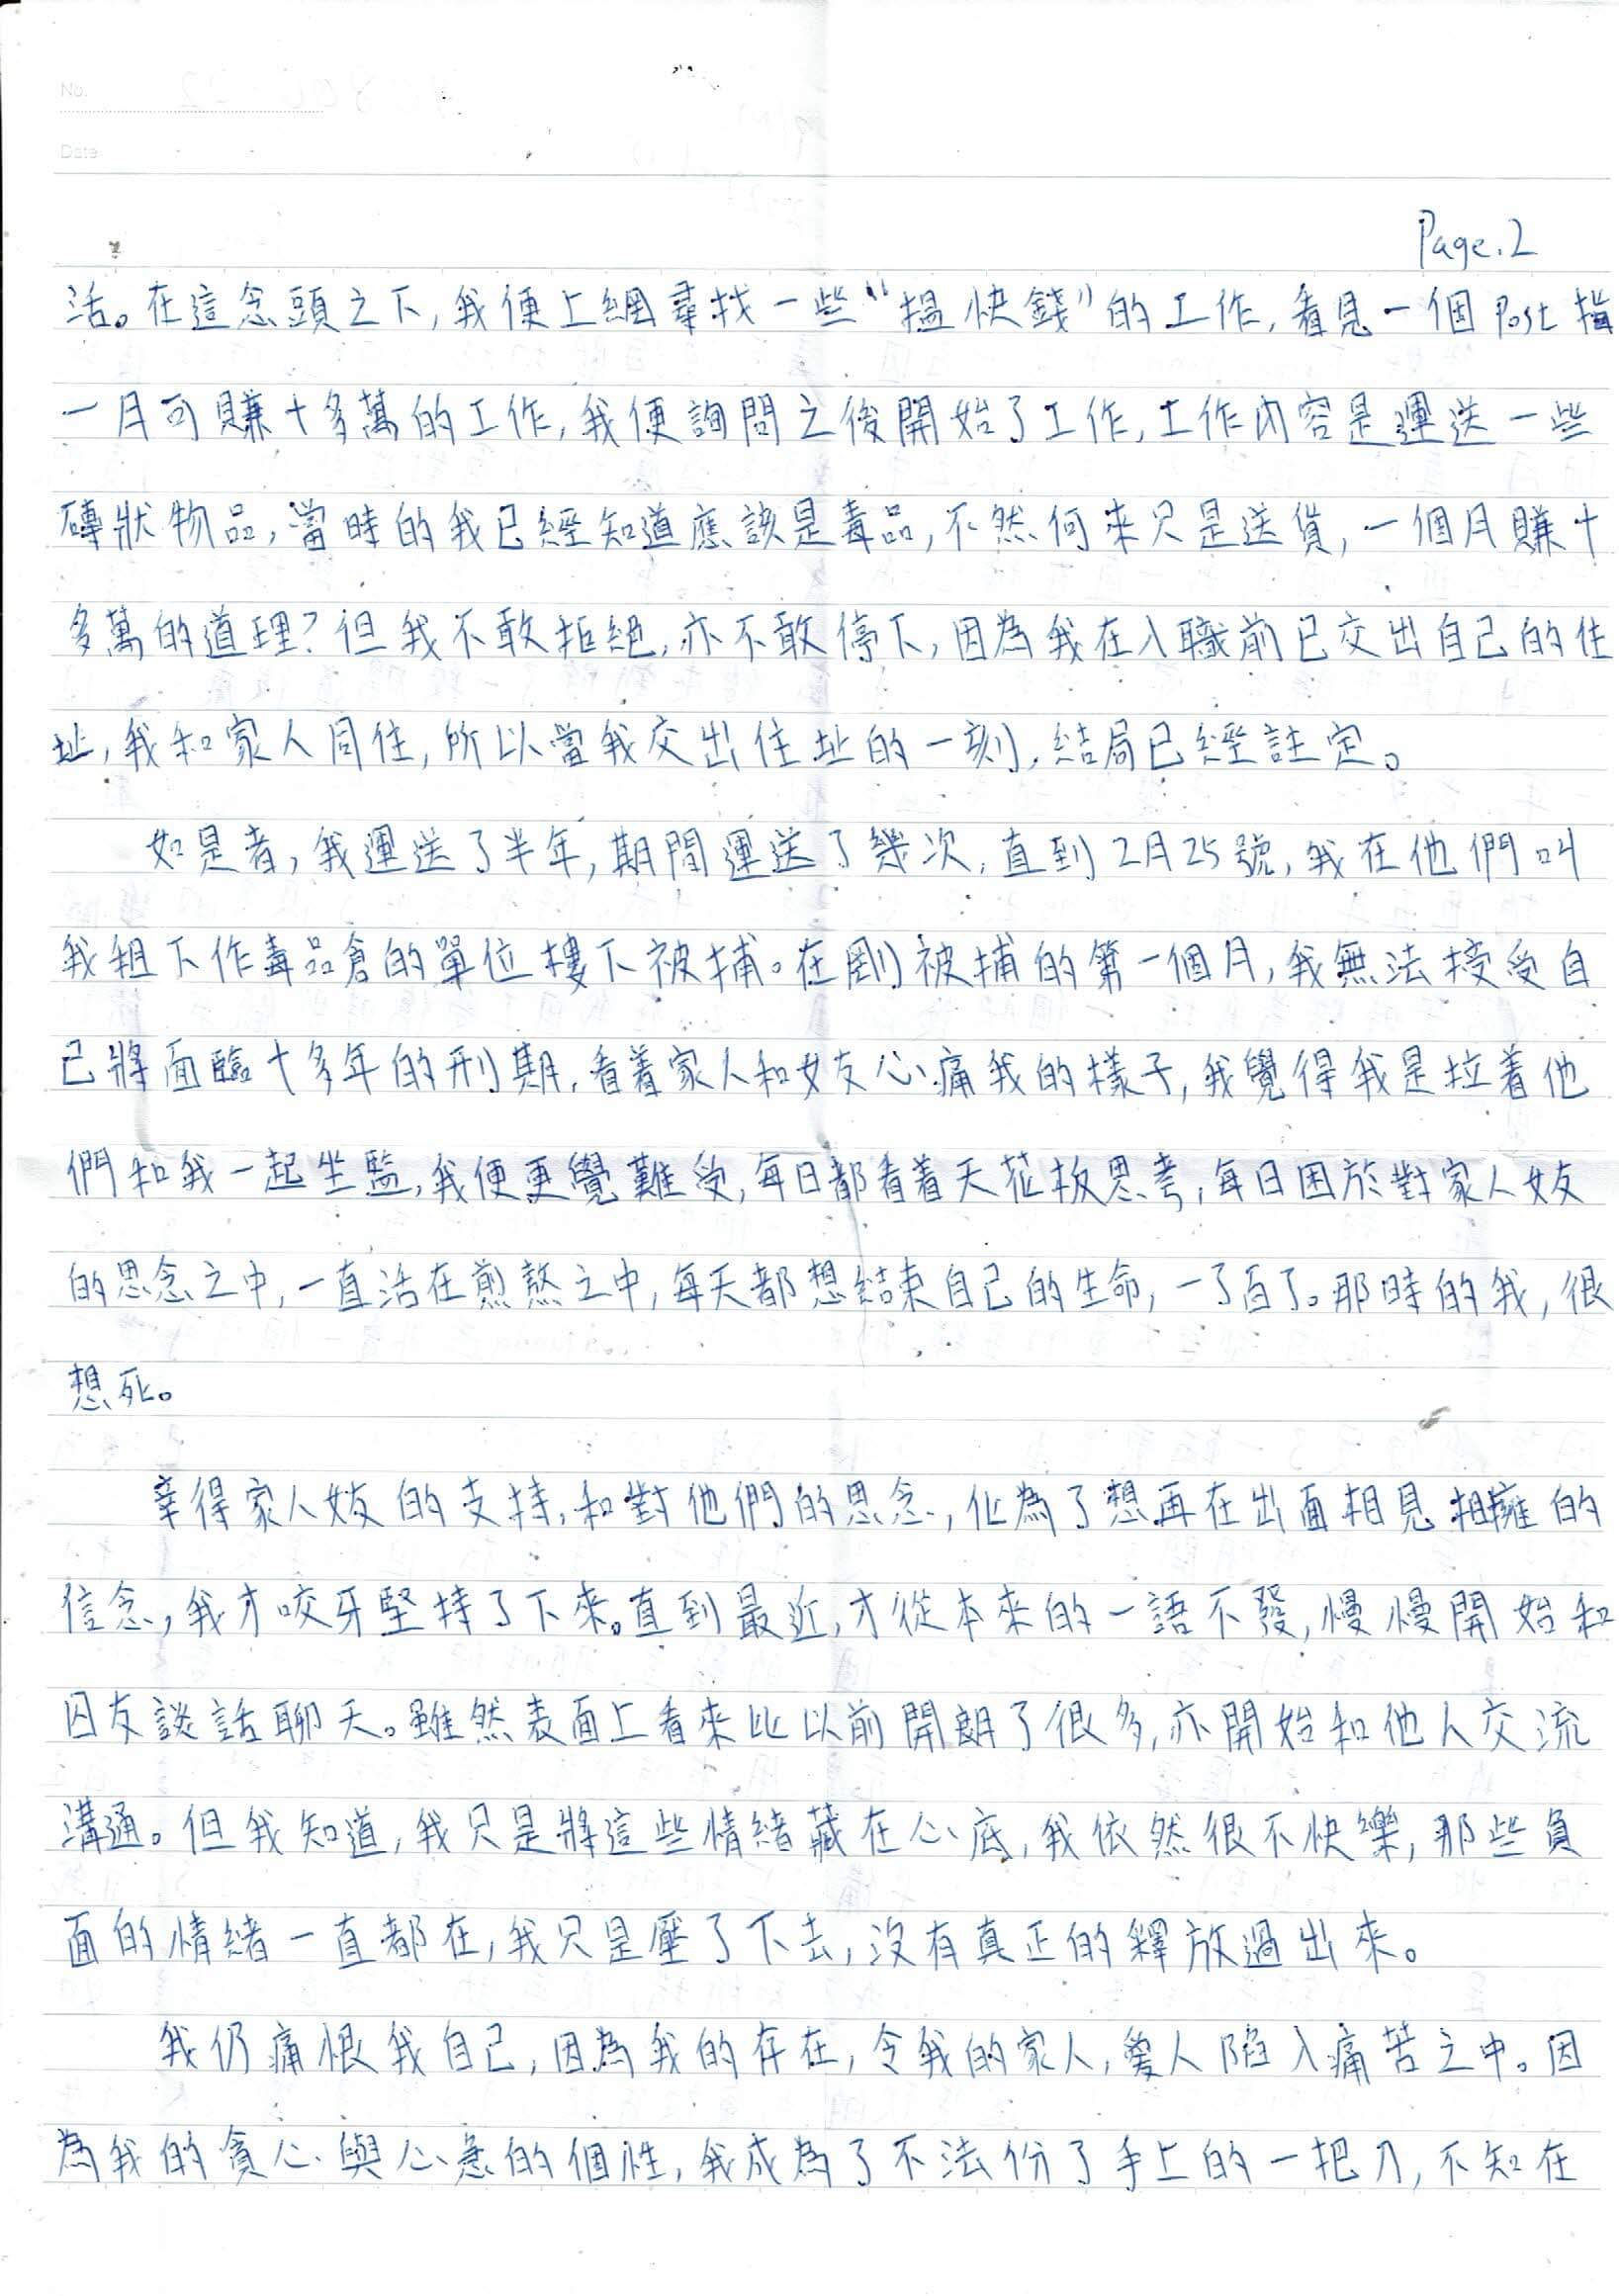 No.
Date
Page.2
活。在這念頭之下,我便上網尋找一些“搵快錢”的工作,看見一個Post指
一月可賺十多萬的工作,我便詢問之後開始了工作,工作內容是運送一些
磚狀物品,當時的我已經知道應該是毒品,不然何來只是送貨,一個月賺十
多萬的道理?但我不敢拒絕,亦不敢停下,因為我在入職前已交出自己的住
址,我和家人同住,所以當我交出住址的一刻,結局已經註定。
如是者,我運送了半年,期間運送了幾次,直到2月25號,我在他們叫
我租下作毒品倉的單位樓下被捕。在剛被捕的第一個月,我無法接受自
己將面臨十多年的刑期,看着家人和女友心痛我的樣子,我覺得我是拉着他
們和我一起坐監,我便更覺難受,每日都看着天花板思考,每日困於對家人女友
的思念之中,一直活在煎熬之中,每天都想結束自己的生命,一了百了。那時的我,很
想死。
幸得家人女友的支持,和對他們的思念,化為了想再在出面相見相擁的
信念,我才咬牙堅持了下來。直到最近,才從本來的一語不發,慢慢開始和
囚友談話聊天。雖然表面上看來比以前開朗了很多,亦開始和他人交流
溝通。但我知道,我只是將這些情緒藏在心底,我依然很不快樂,那些負
面的情緒一直都在,我只是壓了下去,沒有真正的釋放過出來。
我仍痛恨我自己,因為我的存在,令我的家人,愛人陷入痛苦之中。因
為我的貪心與心急的個性,我成為了不法份了手上的一把刀,不知在